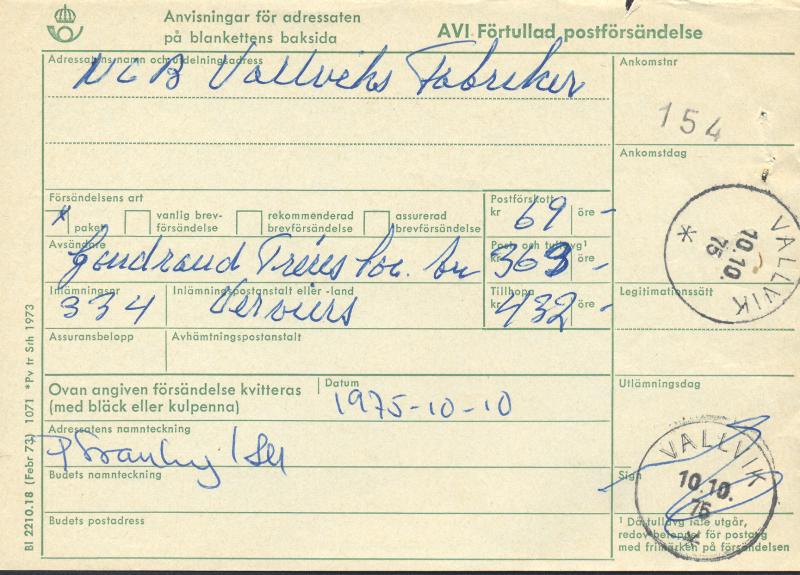 Anvisningar för adressaten
på blankettens baksida
AVI Förtullad postförsändelse
Adressatens namn och utdelningsadress
NCB Vallviks Fabriker
Ankomstnr
154
Ankomstdag
VALLVIK
10.10.
75
*
Försändelsens art
x paket
vanlig brev-
försändelse
rekommenderad
brevförsändelse
assurerad
brevförsändelse
Postförskott
kr 69 öre -
Avsändare
Gondrand Frères Soc. An
Post- och tullavg¹
363 -
Inlämningsnr
334
Inlämningspostanstalt eller -land
Verviers
Tillhopa
kr 432 öre -
Legitimationssätt
Assuransbelopp
Avhämtningspostanstalt
Ovan angiven försändelse kvitteras
(med bläck eller kulpenna)
Datum
1975-10-10
Utlämningsdag
Adressatens namnteckning
Budets namnteckning
Sign
VALLVIK
10.10.
75
*
Budets postadress
¹ Då tullavg inte utgår,
redov beloppet för postavg
med frimärken på försändelsen
Bl 2210.18 (Febr 73) 1071 *Pv tr Srh 1973